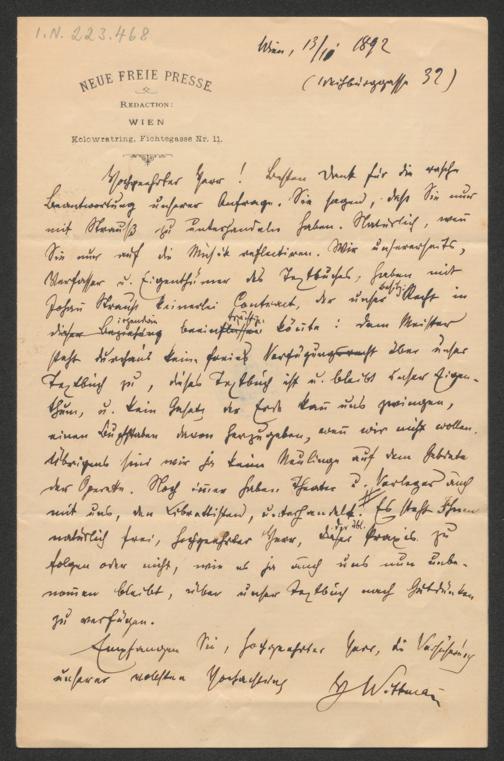 I.N. 223.468
Wien, 13/10 1892
(Weihburggasse 32)
NEUE FREIE PRESSE
REDACTION:
WIEN
Kolowratring, Fichtegasse Nr. 11.
Hochgeehrter Herr! Besten Dank für die rasche
Beantwortung unserer Anfrage. Sie sagen, daß Sie nur
mit Strauß zu unterhandeln haben. Natürlich, wenn
Sie nur auf die Musik reflectiren. Wir unsererseits,
Verfasser u. Eigenthümer des Textbuches, haben mit
Johann Strauß keinerlei Contract, der unser Recht in
irgendein
dieser Beziehung könnte: dem Meister
steht durchaus kein freies Verfügungsrecht über unser
Textbuch zu, dieses Textbuch ist u. bleibt unser Eigen-
thum, u. kein Gesetz der Erde kann uns zwingen,
einen Buchstaben davon herzugeben, wenn wir nicht wollen.
Übrigens sind wir ja keine Neulinge auf dem Gebiete
der Operette. Noch immer haben Theater u. Verleger auch
mit uns, den Librettisten, unterhandelt. Es steht Ihnen
natürlich frei, hochgeehrter Herr, dieser Praxis zu
folgen oder nicht, wie es ja auch uns nun unbe-
nommen bleibt, über unser Textbuch nach Gutdünken
zu verfügen.
Empfangen Sie, hochgeehrter Herr, die Versicherung
unserer vollsten Hochachtung
H Wittmann